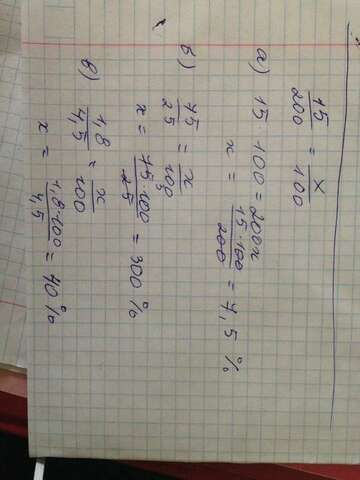 15/200 = x/100
а) 15 · 100 = 200x
x = 15·100/200 = 7,5 %
б) 75/25 = x/100
x = 75·100/25 = 300 %
в) 1,8/4,5 = x/100
x = 1,8·100/4,5 = 40 %